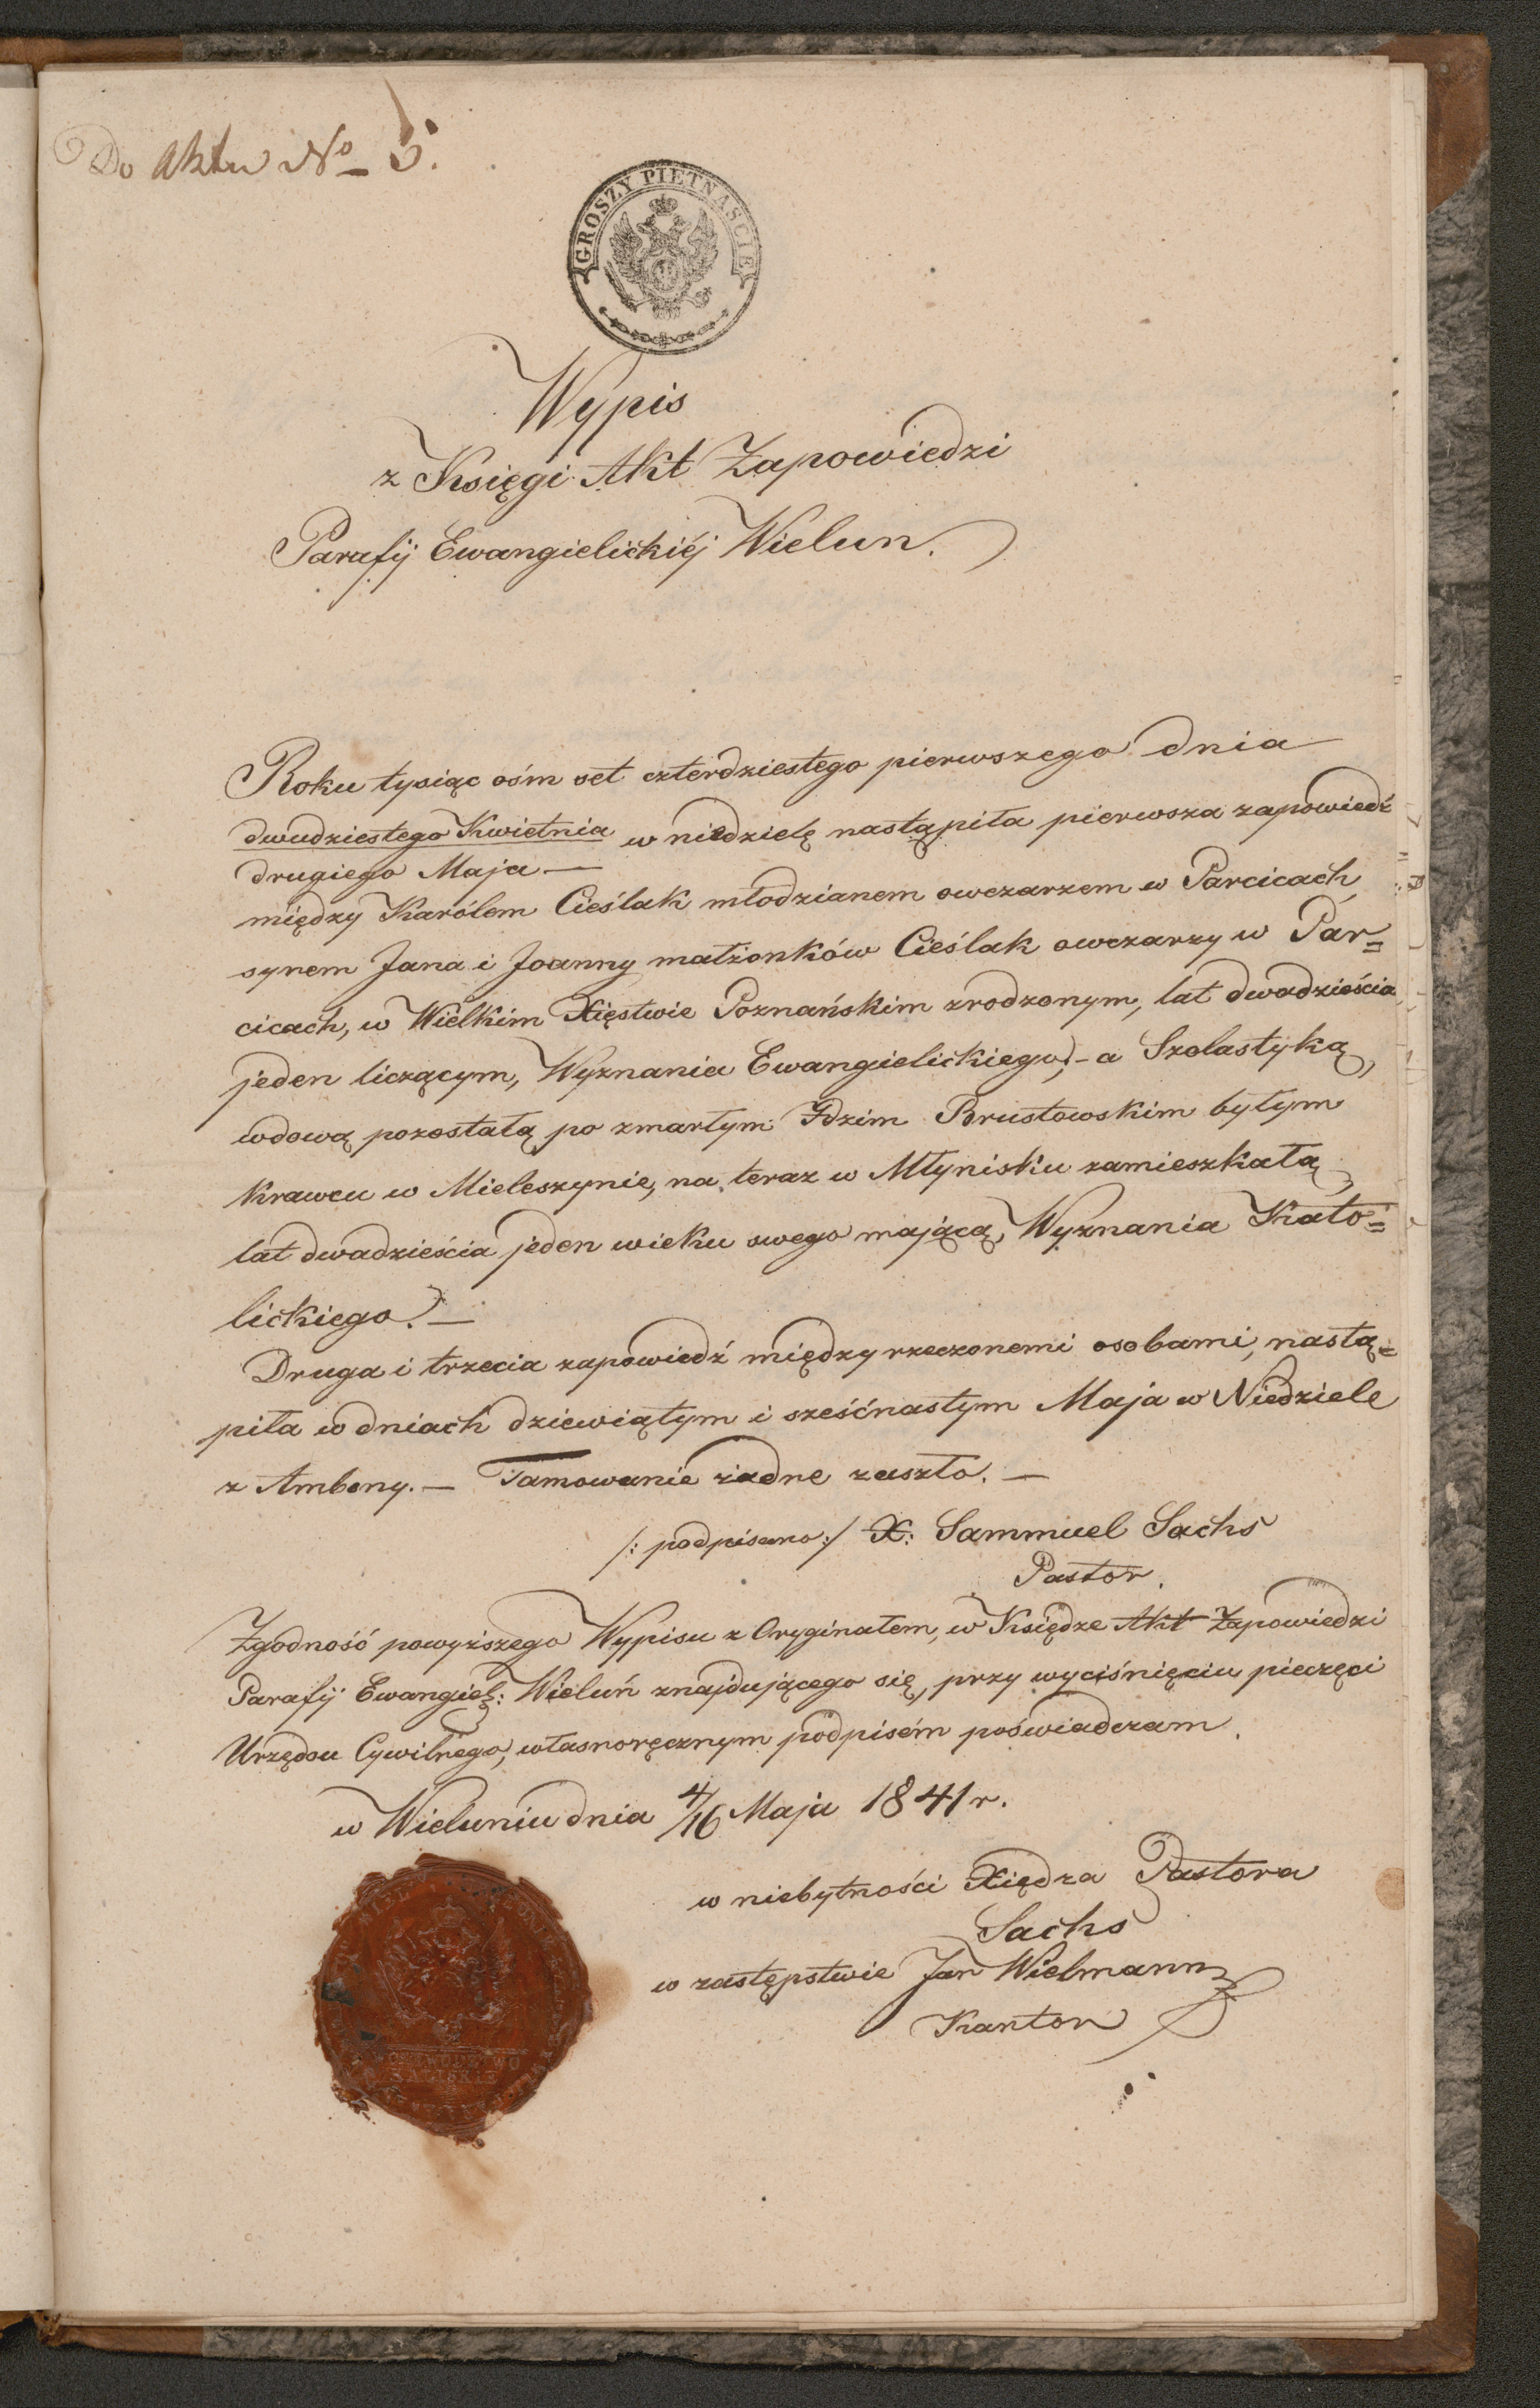 Do Aktu No 5.
GROSZY PIETNAŚCIE
Wypis
z Księgi Akt Zapowiedzi
Parafij Ewangielickiéj Wielun.
Roku tysiąc ośm set czterdziestego pierwszego dnia
dwudziestego Kwietnia w niedzielę nastąpiła pierwsza zapowiedź
drugiego Maja —
między Karólem Cieślak młodzianem owczarzem w Parcicach,
synem Jana i Joanny małżonków Cieślak owczarzy w Par=
cicach, w Wielkim Xięstwie Poznańskim zrodzonym, lat dwadzieścia
jeden liczącym, Wyznania Ewangielickiego; – a Szolastyką,
wdową pozostałą po zmarłym Idzim Brustowskim byłym
krawcu w Mieleszynie, na teraz w Młynisku zamieszkałą,
lat dwadzieścia jeden wieku swego mającą, Wyznania Kato=
lickiego. —
Druga i trzecia zapowiedź między rzeczonemi osobami, nastą=
piła w dniach dziewiątym i sześćnastym Maja w Niedziele
z Ambony. — Tamowanie żadne zaszło. —
/: podpisano :/ X: Sammuel Sachs
Pastor.
Zgodność powyższego Wypisu z Oryginałem, w Księdze Akt Zapowiedzi
Parafij Ewangiel: Wieluń znajdującego się, przy wyciśnięciu pieczęci
Urzędu Cywilnego, własnoręcznym podpisém poświadczam.
w Wieluniu dnia 4/16 Maja 1841 r.
w niebytności Xiędza Pastora
Sachs
w zastępstwie Jan Wielmann
Kantor
WOJEWÓDZTWO
KALISKIE